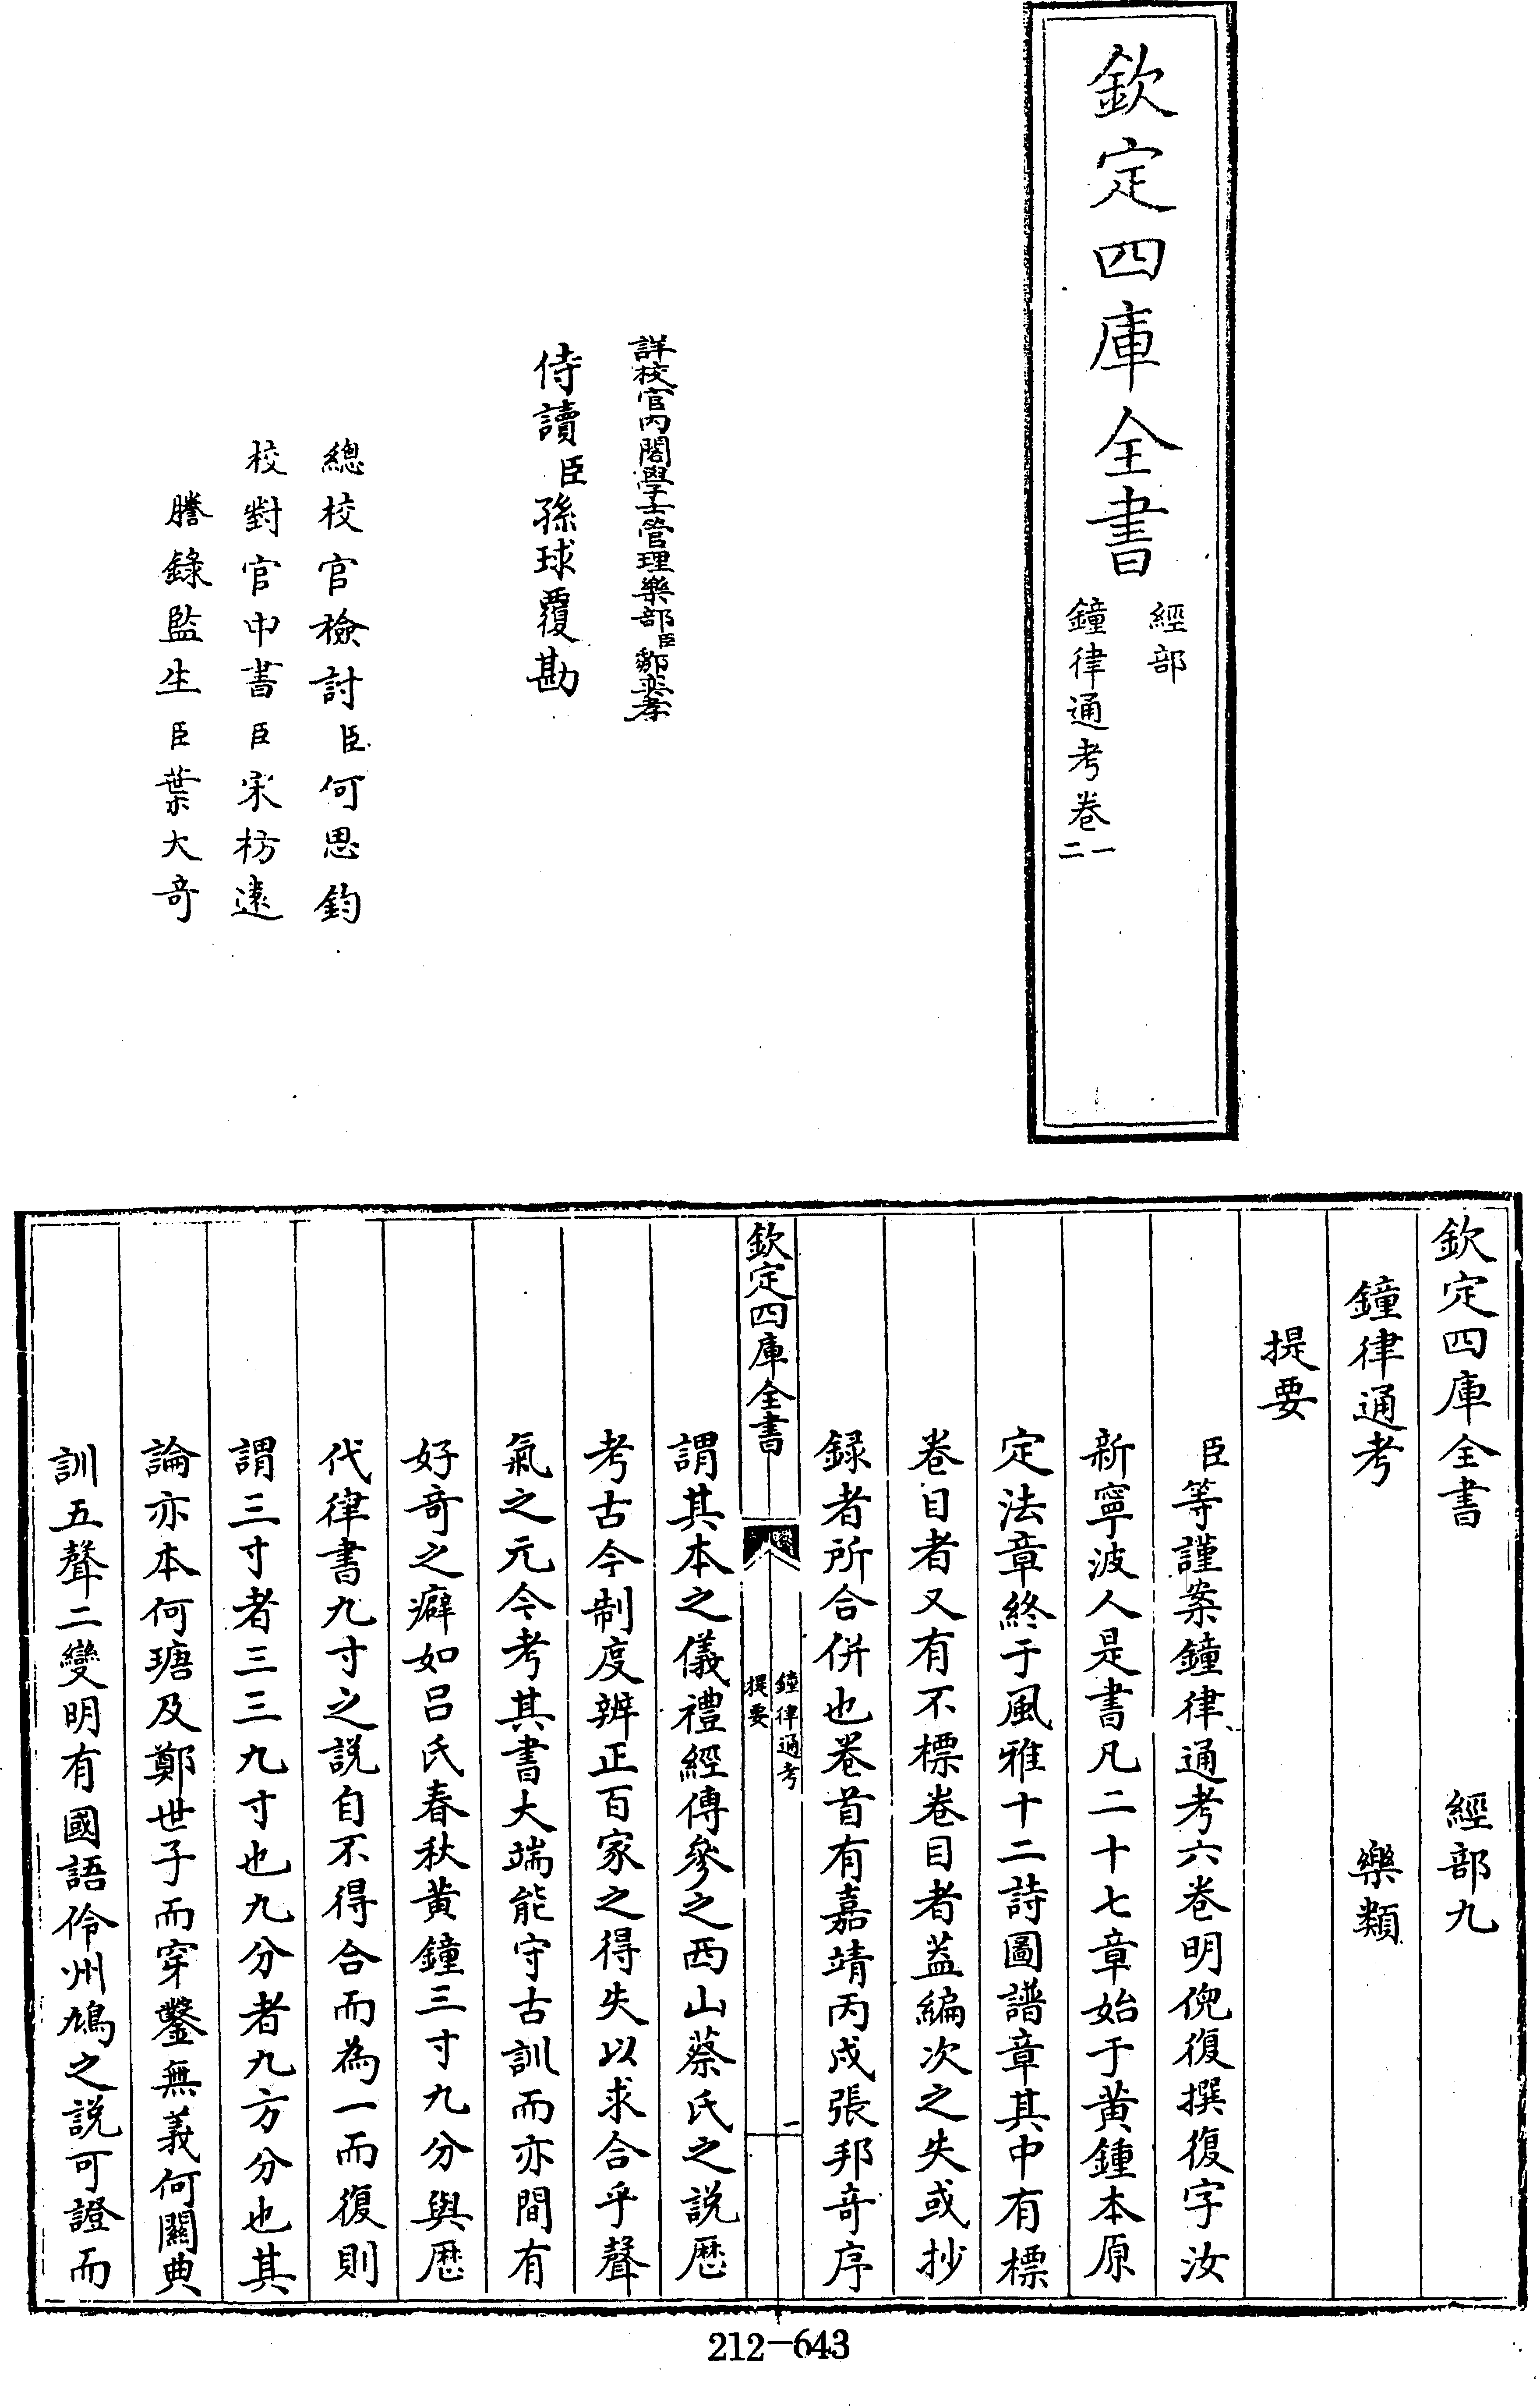 欽定四庫全書
經部
鐘律通考卷一二
詳校官內閣學士管理樂部臣鄒奕孝
侍讀臣孫球覆勘
總校官檢討臣何思鈞
校對官中書臣宋枋遠
謄錄監生臣葉大奇
欽定四庫全書 經部九
鐘律通考 樂類
提要
臣等謹案鐘律通考六卷明倪復撰復字汝
新寧波人是書凡二十七章始于黃鍾本原
定法章終于風雅十二詩圖譜章其中有標
卷目者又有不標卷目者葢編次之失或抄
録者所合併也卷首有嘉靖丙戌張邦竒序
欽定四庫全書
鐘律通考
提要
一
謂其本之儀禮經傳參之西山蔡氏之説歷
考古今制度辨正百家之得失以求合乎聲
氣之元今考其書大端能守古訓而亦間有
好竒之癖如吕氏春秋黄鐘三寸九分與歷
代律書九寸之説自不得合而為一而復則
謂三寸者三三九寸也九分者九方分也其
論亦本何瑭及鄭世子而穿鑿無義何關典
訓五聲二變明有國語伶州鳩之説可證而
212-643